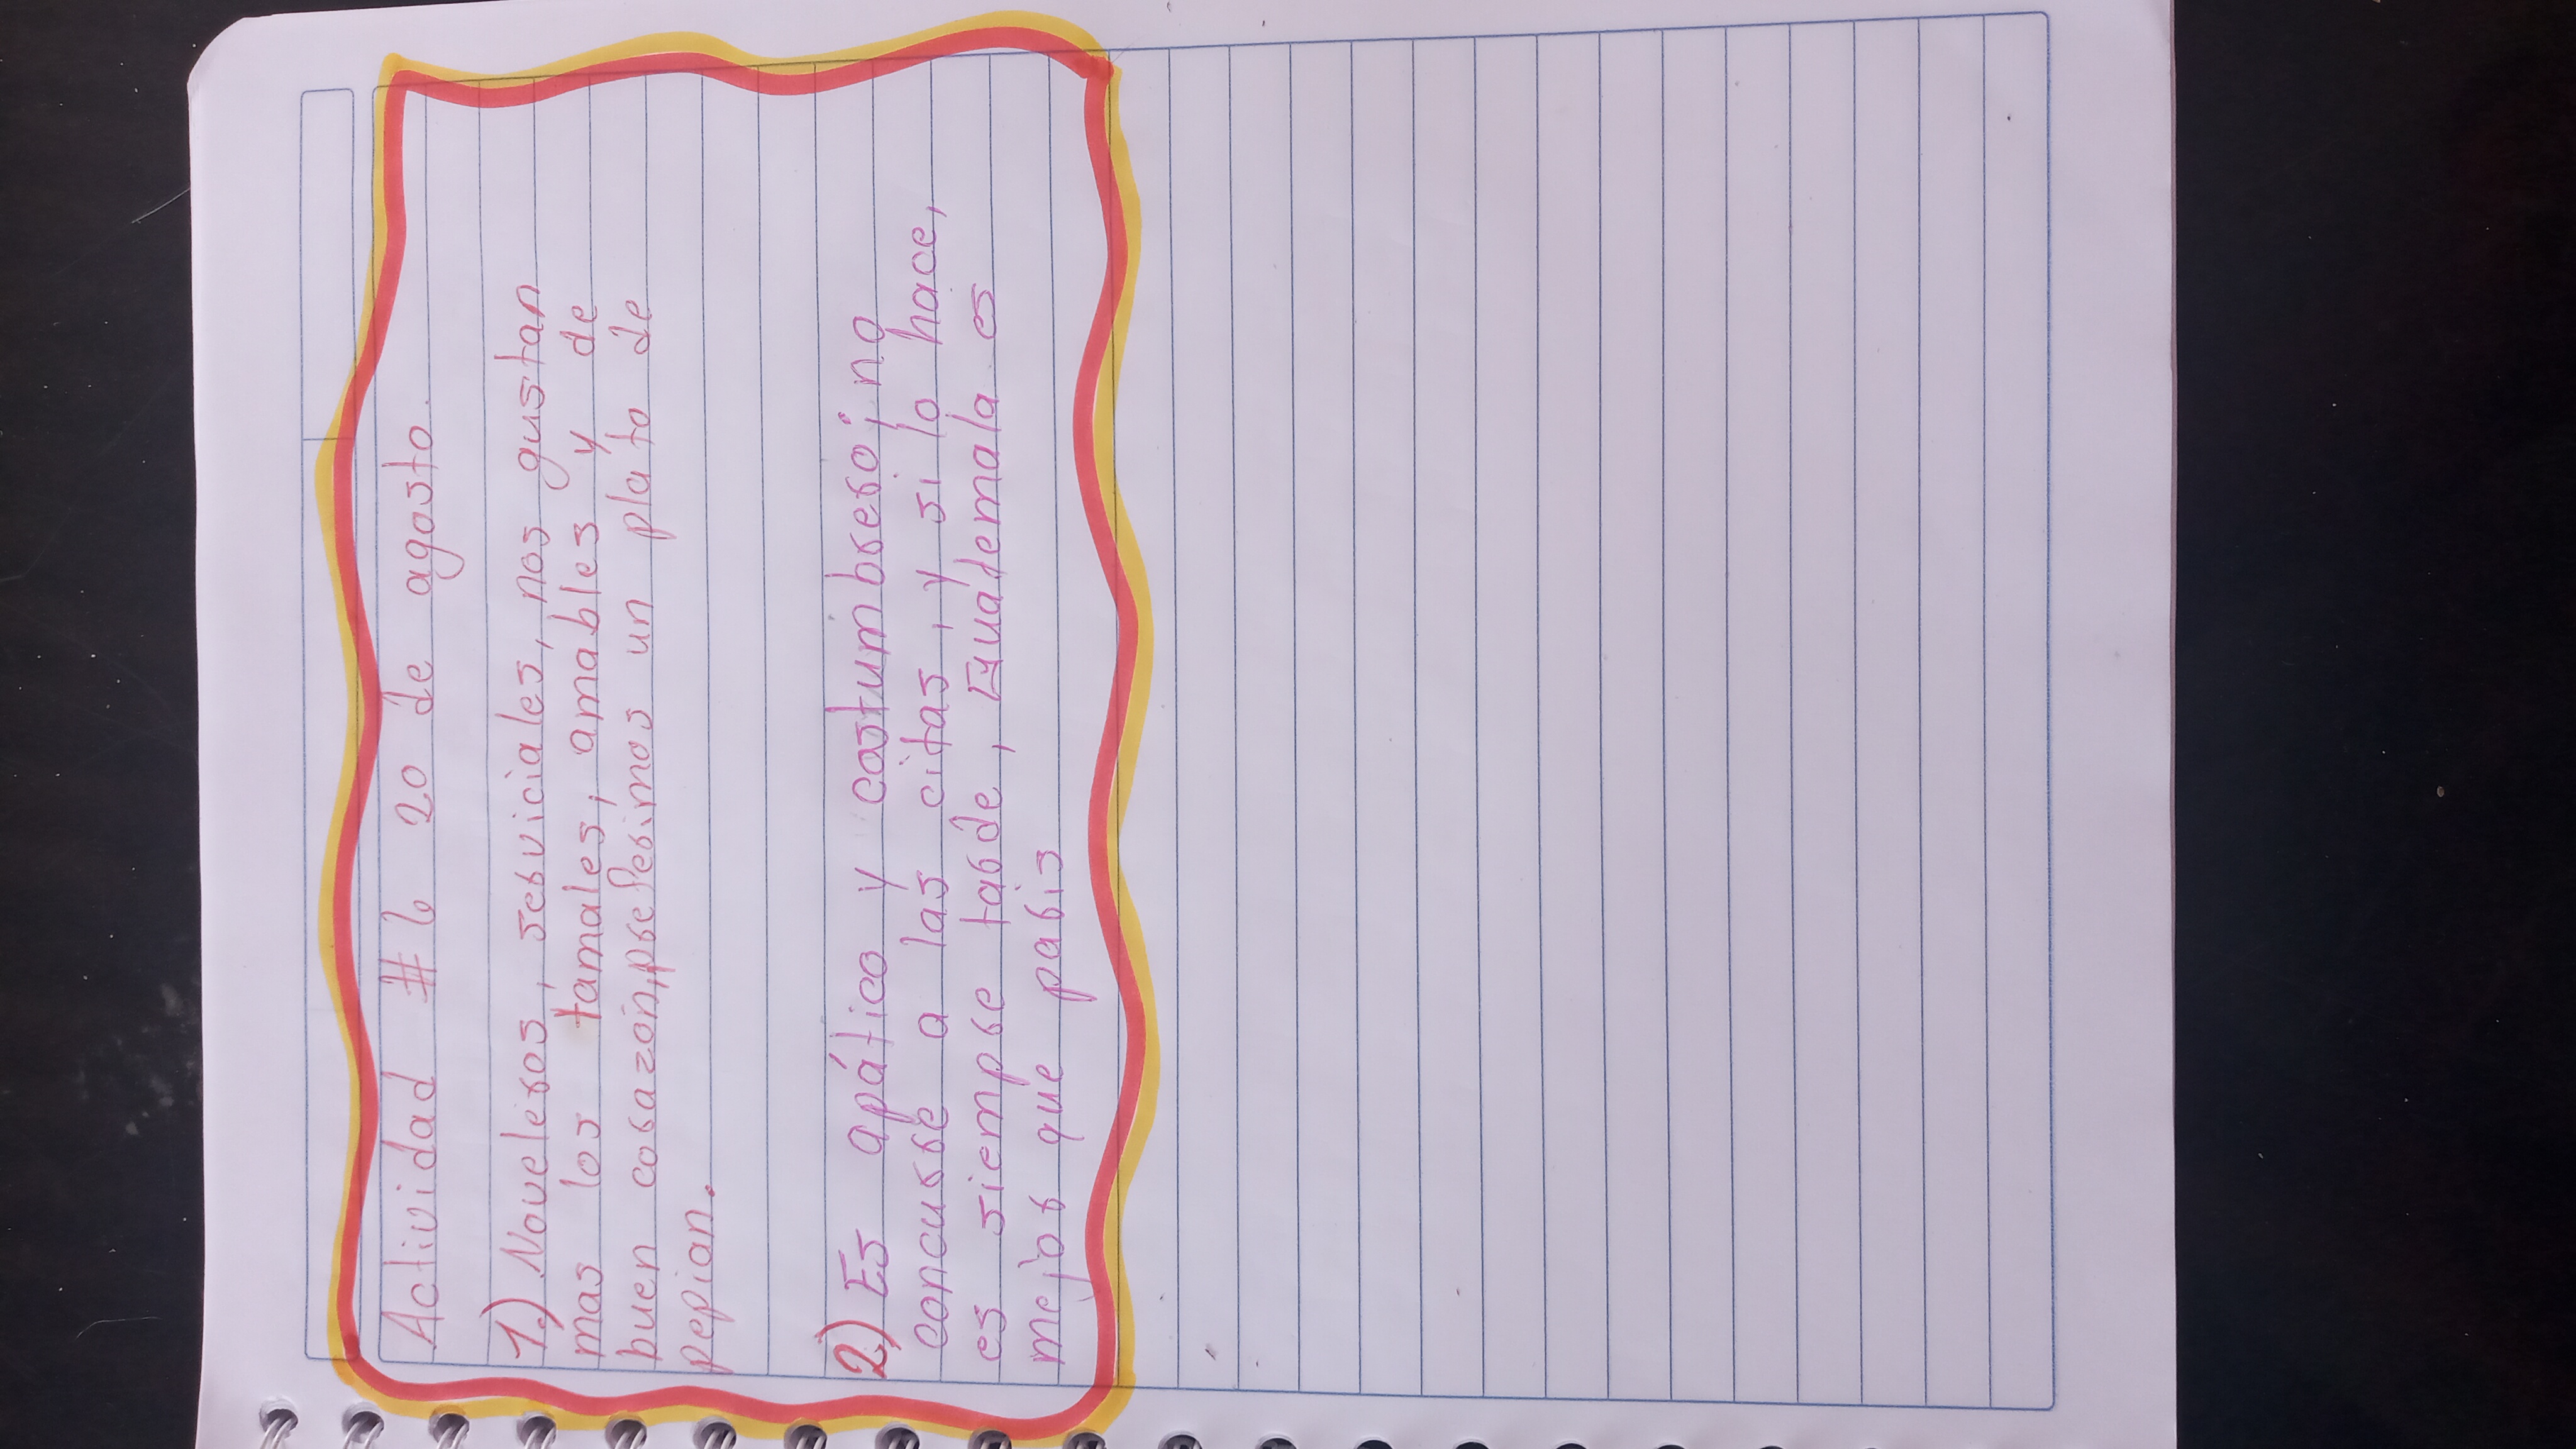 Actividad #6 20 de agosto.
1.) Noveleros, serviciales, nos gustan
mas los tamales, amables y de
buen corazón, preferimos un plato de
pepian.
2) Es apático y costumbrero; no
concurre a las citas, y si lo hace,
es siempre tarde, Guademala es
mejor que paris